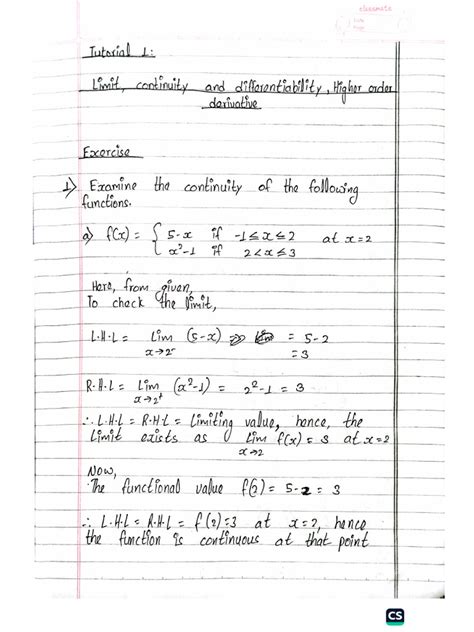 classmate
Date
Page
Tutorial 1:
Limit, continuity and differentiability, Higher order
derivative
Exercise
1) Examine the continuity of the following
functions.
a) f(x) = { 5-x if -1≤x≤2 at x=2
x²-1 if 2<x≤3
Here, from given,
To check the limit,
L.H.L = lim (5-x) = 5-2
x→2⁻ = 3
R.H.L = lim (x²-1) = 2²-1 = 3
x→2⁺
∴ L.H.L = R.H.L = limiting value, hence, the
limit exists as lim f(x) = 3 at x=2
x→2
Now,
The functional value f(2) = 5-2 = 3
∴ L.H.L = R.H.L = f(2)=3 at x=2, hence
the function is continuous at that point
CS